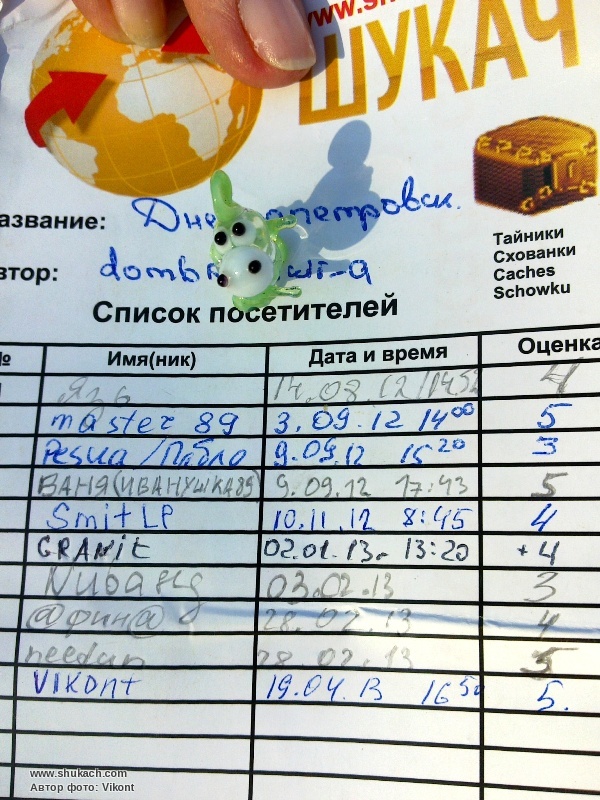 www.sh
ШУКАЧ
азвание:
втор:
Тайники
Сховanки
Caches
Schowku
Список посетителей
№ Имя(ник) Дата и время Оценка
Язь 14.08.12 4
master 89 3.09.12 14 00 5
/Пабло 9.09.12 15 20 3
ВАНЯ(ИВАНУШКА89) 9.09.12 17:43 5
Smit LP 10.11.12 8:45 4
GRANit 02.01.13. 13:20 +4
03.02.13 3
@фин@ 28.02.13 4
28.02.13 5
VIKONT 19.04.13 16 50 5.
www.shukach.com
Автор фото: Vikont